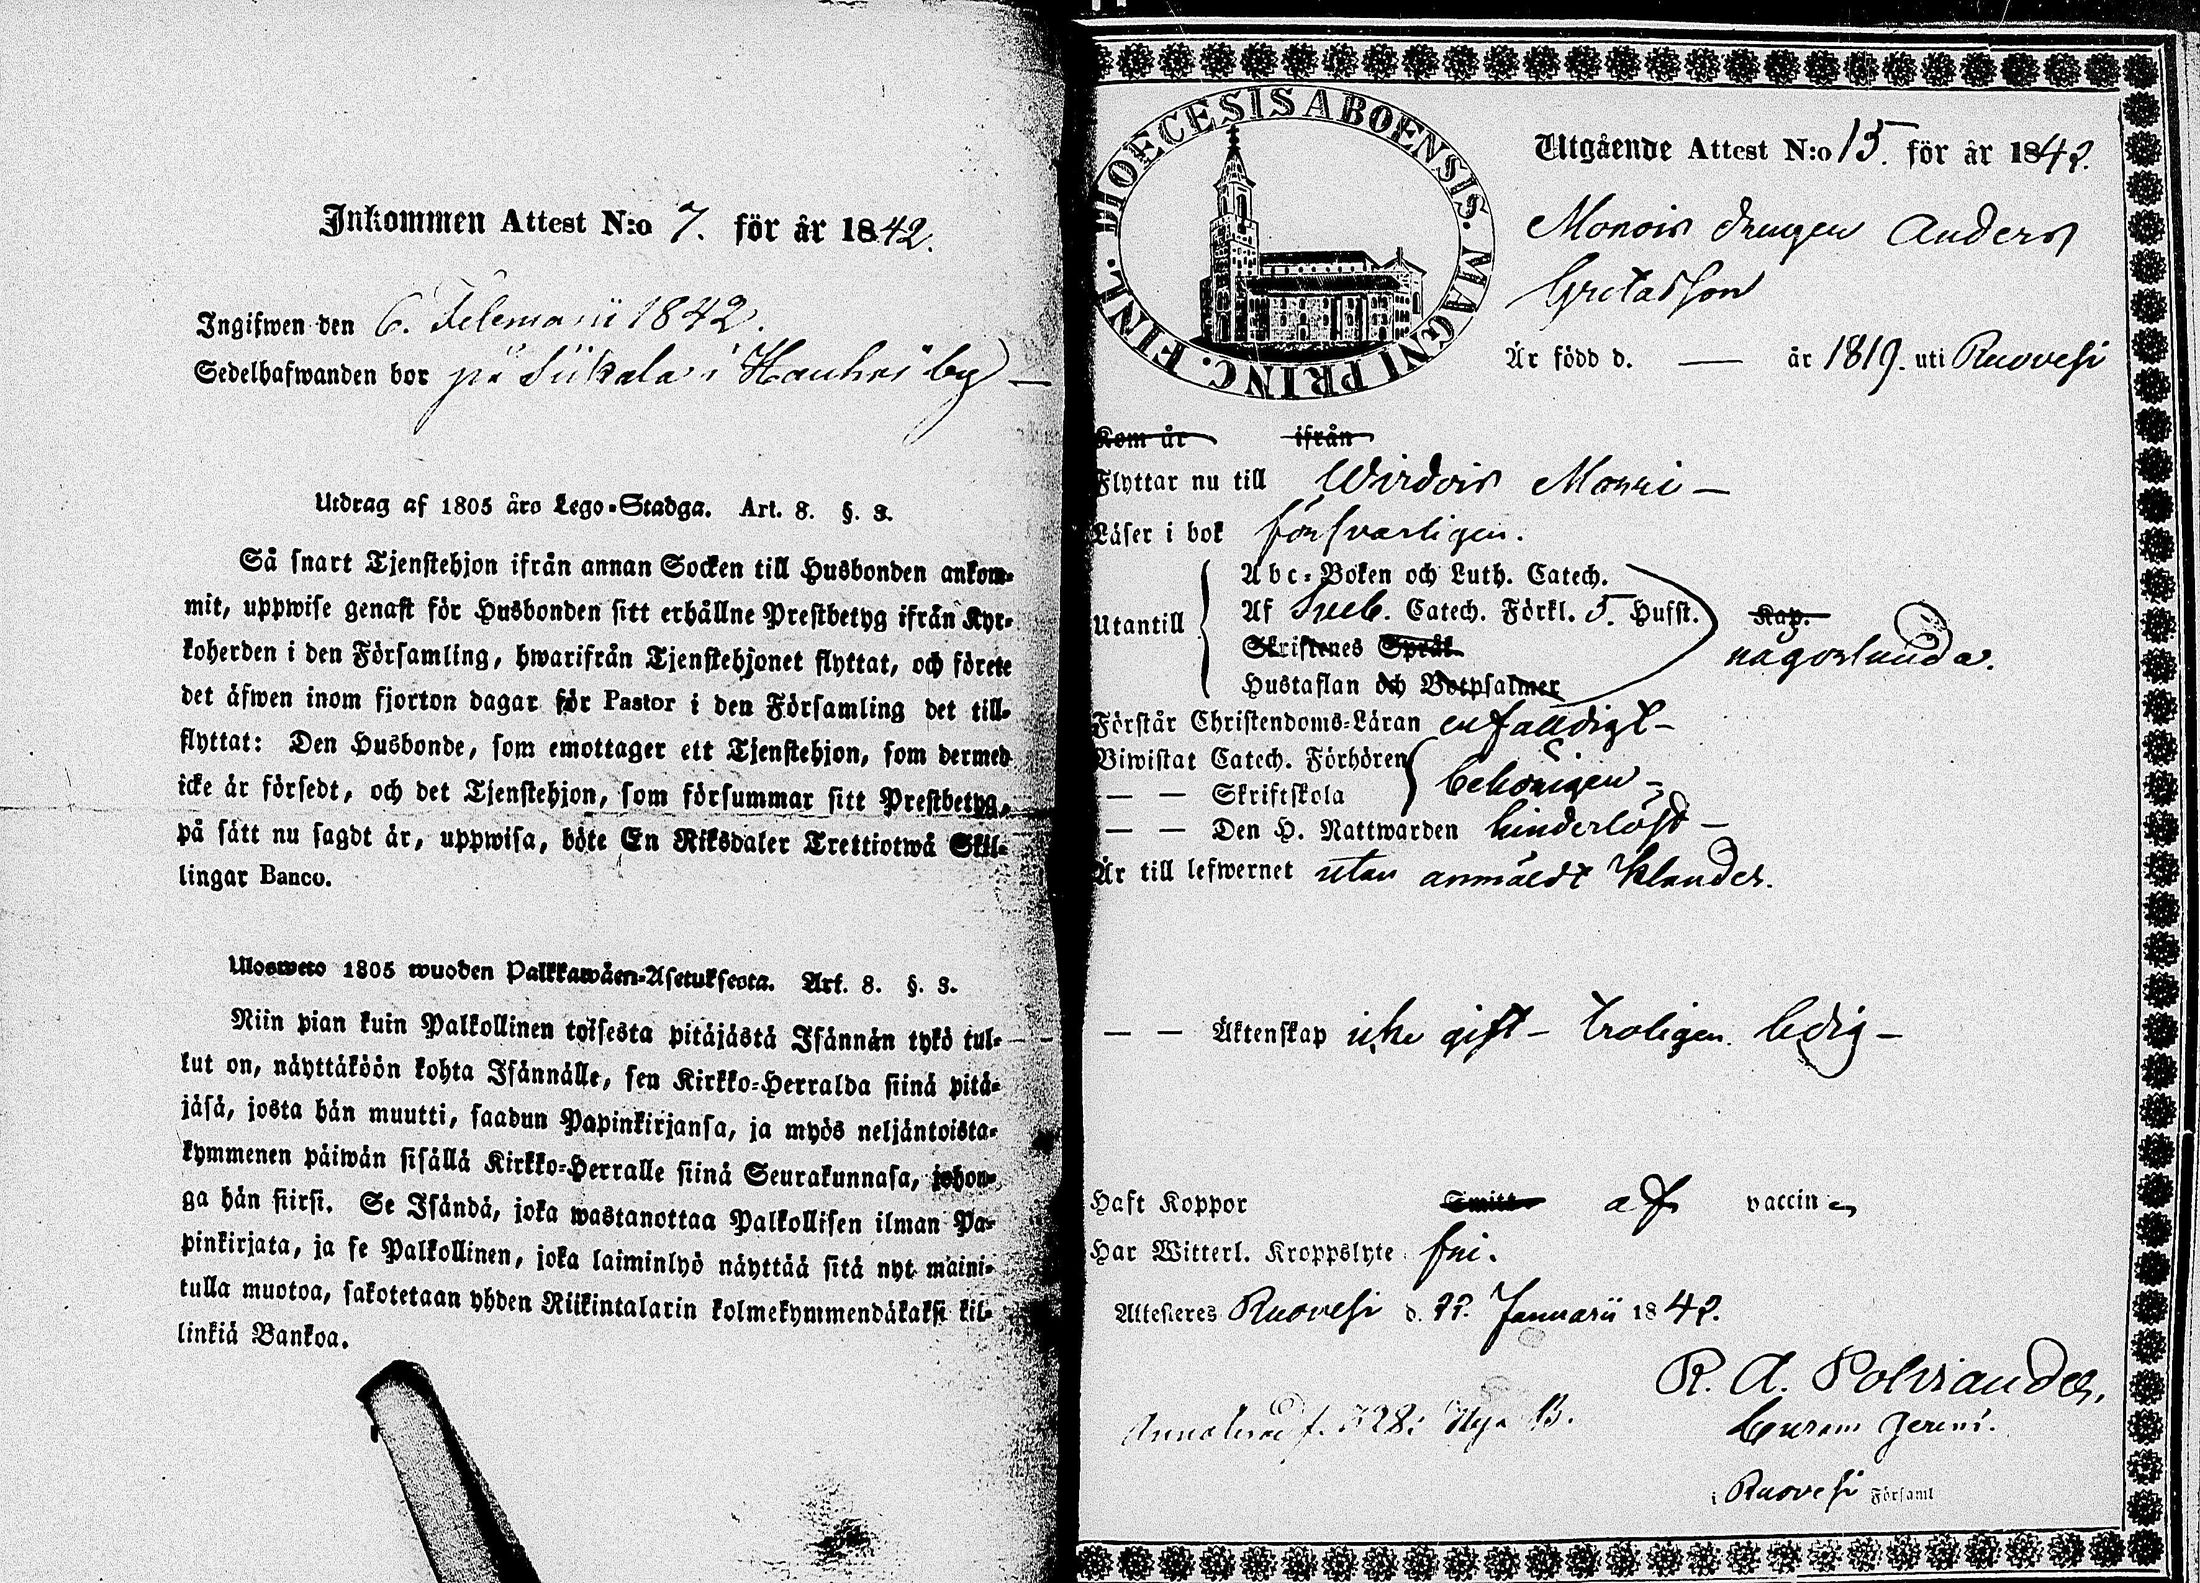 Inkommen Attest N:o 7. för år 1842.
Ingifwen den 6. Februarii 1842.
Sedelhafwanden bor på Siikala i Hauhus by —
Utdrag af 1805 års Lego-Stadga. Art. 8. §. 3.
Så snart Tjenstehjon ifrån annan Socken till Husbonden ankom-
mit, uppwise genast för Husbonden sitt erhållne Prestbetyg ifrån Kyr-
koherden i den Församling, hwarifrån Tjenstehjonet flyttat, och förete
det äfwen inom fjorton dagar för Pastor i den Församling det till-
flyttat: Den Husbonde, som emottager ett Tjenstehjon, som dermed
icke är försedt, och det Tjenstehjon, som försummar sitt Prestbetyg,
på sätt nu sagdt är, uppwisa, böte En Riksdaler Trettiotwå Skil-
lingar Banco.
Ulosweto 1805 wuoden Palkkawäen-Asetuksesta. Art. 8. §. 3.
Niin pian kuin Palkollinen toisesta pitäjästä Isännän tykö tul-
lut on, näyttäköön kohta Isännälle, sen Kirkko-Herralda siinä pitä-
jäsä, josta hän muutti, saadun Papinkirjansa, ja myös neljäntoista-
kymmenen päiwän sisällä Kirkko-Herralle siinä Seurakunnasa, johon-
ga hän siirsi. Se Isändä, joka wastanottaa Palkollisen ilman Pa-
pinkirjata, ja se Palkollinen, joka laiminlyö näyttää sitä nyt maini-
tulla muotoa, sakotetaan yhden Riikintalarin kolmekymmendäkaksi kil-
linkiä Bankoa.
DIOECESIS ABOENSIS. MAGNI PRINC. FINL.
Utgående Attest N:o 15. för år 1842.
Monois drengen Anders
Gretasson
Är född d. — år 1819. uti Ruovesi
Kom år ifrån
Flyttar nu till Wirdois Monni —
Läser i bok försvarligen.
Utantill
Abc-Boken och Luth. Catech.
Af Sveb. Catech. Förkl. 5. Hufst. Kap.
Skriftenes Språk någorlunda.
Hustaflan och Botpsalmer
Förstår Christendoms-Läran enfalldigt —
Biwistat Catech. Förhören
— — Skriftskola behörigen —
— — Den H. Nattwarden hinderlöst —
Är till lefwernet utan anmäldt klander.
— — Äktenskap icke gift — troligen ledig —
Haft Koppor Smitt af vaccin
Har Witterl. Kroppslyte fri.
Attesteres Ruovesi d. 22. Januarii 1842.
R. A. Polviander,
Curam gerens.
i Ruovesi Församl